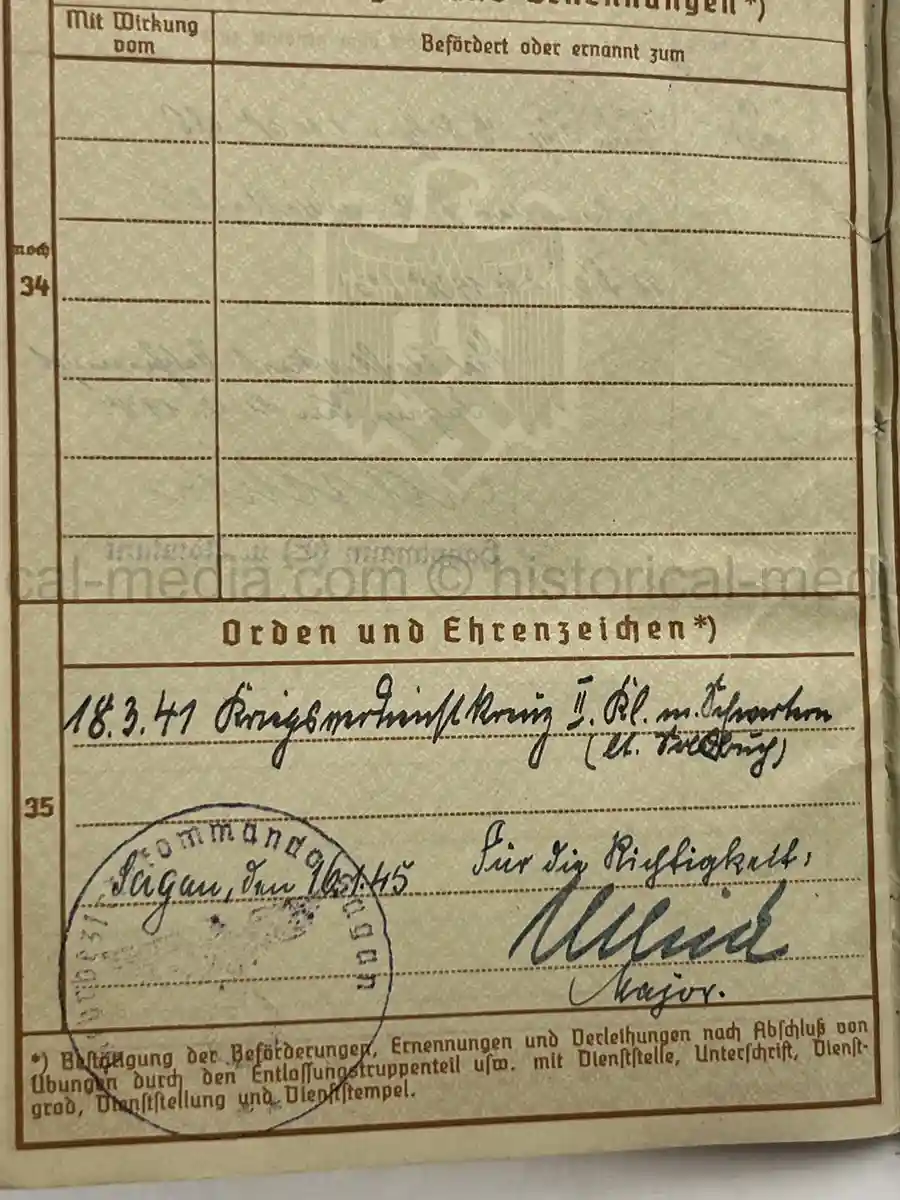 Ernennungen *)
Mit Wirkung
vom
Befördert oder ernannt zum
noch
34
Hauptmann (E)
cal-media.com © historical-medi
Orden und Ehrenzeichen*)
18.3.41 Kriegsverdienstkreuz II. Kl. m. Schwertern
(lt. Soldbuch)
35
Kommando Sagan
Für die Richtigkeit:
Sagan, den 16.1.45
Major.
*) Bestätigung der Beförderungen, Ernennungen und Verleihungen nach Abschluß von
Übungen durch den Entlassungstruppenteil usw. mit Dienststelle, Unterschrift, Dienst-
grad, Dienststellung und Dienststempel.